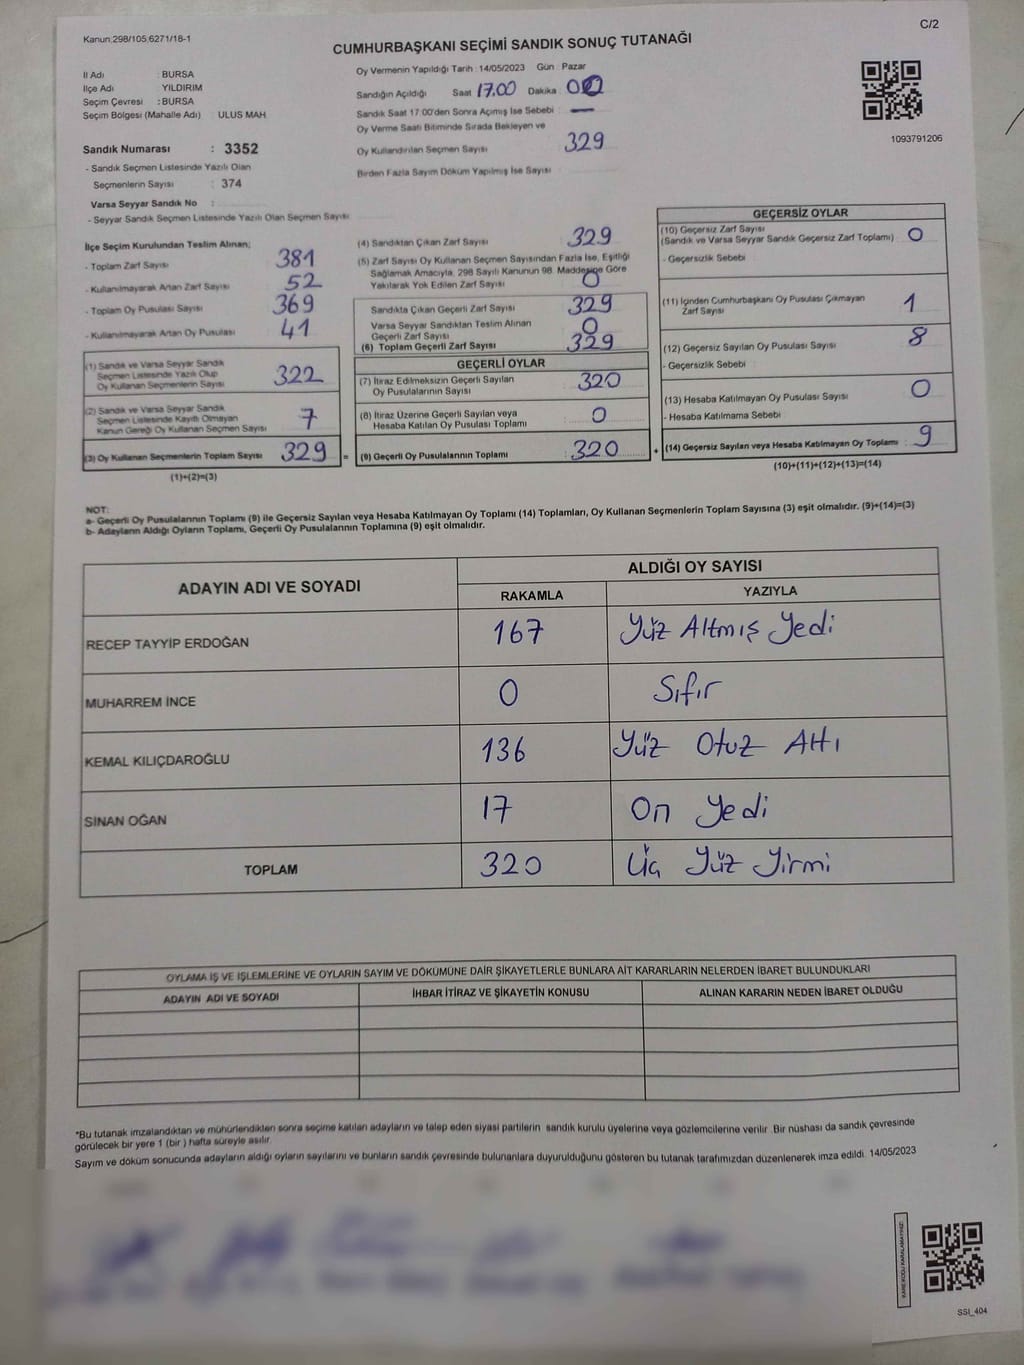 Kanun:298/105;6271/18-1
C/2
CUMHURBAŞKANI SEÇİMİ SANDIK SONUÇ TUTANAĞI
İl Adı : BURSA
İlçe Adı : YILDIRIM
Seçim Çevresi : BURSA
Seçim Bölgesi (Mahalle Adı) : ULUS MAH
Sandık Numarası : 3352
- Sandık Seçmen Listesinde Yazılı Olan
Seçmenlerin Sayısı : 374
Varsa Seyyar Sandık No :
- Seyyar Sandık Seçmen Listesinde Yazılı Olan Seçmen Sayısı
Oy Vermenin Yapıldığı Tarih : 14/05/2023 Gün : Pazar
Sandığın Açıldığı Saat 17.00 Dakika
Sandık Saat 17.00'den Sonra Açımış İse Sebebi : —
Oy Verme Saati Bitiminde Sırada Bekleyen ve
Oy Kullandırılan Seçmen Sayısı : 329
Birden Fazla Sayım Döküm Yapılmış İse Sayısı :
1093791206
İlçe Seçim Kurulundan Teslim Alınan;
- Toplam Zarf Sayısı : 381
- Kullanılmayarak Artan Zarf Sayısı : 52
- Toplam Oy Pusulası Sayısı : 369
- Kullanılmayarak Artan Oy Pusulası : 41
(1) Sandık ve Varsa Seyyar Sandık
Seçmen Listesinde Yazılı Olup
Oy Kullanan Seçmenlerin Sayısı : 322
(2) Sandık ve Varsa Seyyar Sandık
Seçmen Listesinde Kayıtlı Olmayan
Kanun Gereği Oy Kullanan Seçmen Sayısı : 7
(3) Oy Kullanan Seçmenlerin Toplam Sayısı : 329 =
(1)+(2)=(3)
(4) Sandıktan Çıkan Zarf Sayısı : 329
(5) Zarf Sayısı Oy Kullanan Seçmen Sayısından Fazla İse, Eşitliği
Sağlamak Amacıyla, 298 Sayılı Kanunun 98. Maddesine Göre
Yakılarak Yok Edilen Zarf Sayısı : 0
Sandıkta Çıkan Geçerli Zarf Sayısı : 329
Varsa Seyyar Sandıktan Teslim Alınan
Geçerli Zarf Sayısı : 0
(6) Toplam Geçerli Zarf Sayısı : 329
GEÇERLİ OYLAR
(7) İtiraz Edilmeksizin Geçerli Sayılan
Oy Pusulalarının Sayısı : 320
(8) İtiraz Üzerine Geçerli Sayılan veya
Hesaba Katılan Oy Pusulası Toplamı : 0
(9) Geçerli Oy Pusulalarının Toplamı : 320 +
GEÇERSİZ OYLAR
(10) Geçersiz Zarf Sayısı : 0
(Sandık ve Varsa Seyyar Sandık Geçersiz Zarf Toplamı)
- Geçersizlik Sebebi
(11) İçinden Cumhurbaşkanı Oy Pusulası Çıkmayan
Zarf Sayısı : 1
(12) Geçersiz Sayılan Oy Pusulası Sayısı : 8
- Geçersizlik Sebebi :
(13) Hesaba Katılmayan Oy Pusulası Sayısı : 0
- Hesaba Katılmama Sebebi :
(14) Geçersiz Sayılan veya Hesaba Katılmayan Oy Toplamı : 9
(10)+(11)+(12)+(13)=(14)
NOT:
a- Geçerli Oy Pusulalarının Toplamı (9) ile Geçersiz Sayılan veya Hesaba Katılmayan Oy Toplamı (14) Toplamları, Oy Kullanan Seçmenlerin Toplam Sayısına (3) eşit olmalıdır. (9)+(14)=(3)
b- Adayların Aldığı Oyların Toplamı, Geçerli Oy Pusulalarının Toplamına (9) eşit olmalıdır.
ADAYIN ADI VE SOYADI
ALDIĞI OY SAYISI
RAKAMLA YAZIYLA
RECEP TAYYİP ERDOĞAN 167 Yüz Altmış Yedi
MUHARREM İNCE 0 Sıfır
KEMAL KILIÇDAROĞLU 136 Yüz Otuz Altı
SİNAN OĞAN 17 On Yedi
TOPLAM 320 Üç Yüz Yirmi
OYLAMA İŞ VE İŞLEMLERİNE VE OYLARIN SAYIM VE DÖKÜMÜNE DAİR ŞİKAYETLERLE BUNLARA AİT KARARLARIN NELERDEN İBARET BULUNDUKLARI
ADAYIN ADI VE SOYADI İHBAR İTİRAZ VE ŞİKAYETİN KONUSU ALINAN KARARIN NEDEN İBARET OLDUĞU
*Bu tutanak imzalandıktan ve mühürlendikten sonra seçime katılan adayların ve talep eden siyasi partilerin sandık kurulu üyelerine veya gözlemcilerine verilir. Bir nüshası da sandık çevresinde
görülecek bir yere 1 (bir ) hafta süreyle asılır.
Sayım ve döküm sonucunda adayların aldığı oyların sayılarını ve bunların sandık çevresinde bulunanlara duyurulduğunu gösteren bu tutanak tarafımızdan düzenlenerek imza edildi. 14/05/2023
KARE KODU KARALAMAYINIZ!
SSI_404